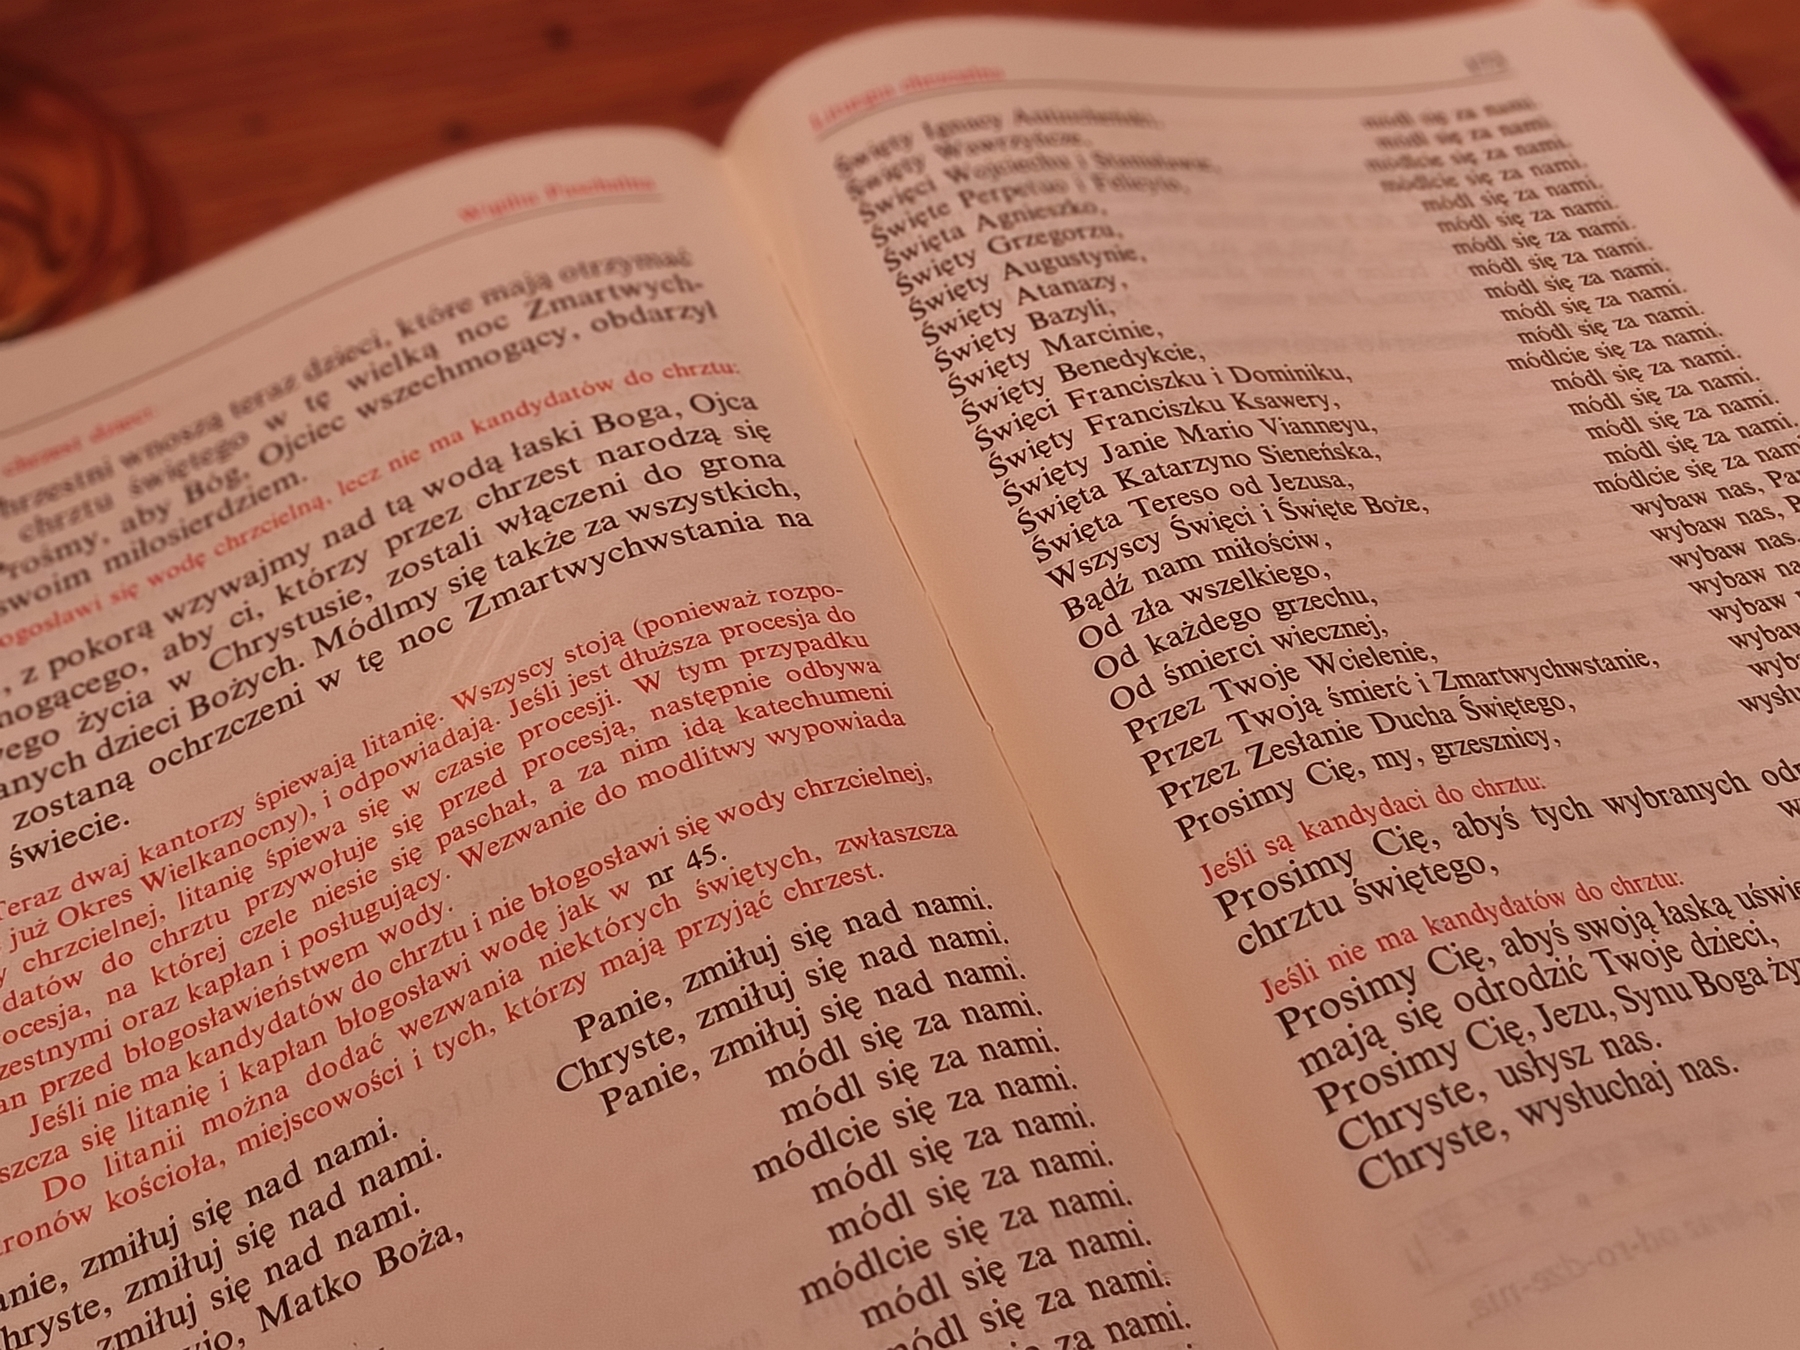 Wigilia Paschalna
chrzest dzieci:
chrzestni wnoszą teraz dzieci, które mają otrzymać
chrztu świętego w tę wielką noc Zmartwych-
rośmy, aby Bóg, Ojciec wszechmogący, obdarzył
swoim miłosierdziem.
ogosławi się wodę chrzcielną, lecz nie ma kandydatów do chrztu:
, z pokorą wzywajmy nad tą wodą łaski Boga, Ojca
mogącego, aby ci, którzy przez chrzest narodzą się
ego życia w Chrystusie, zostali włączeni do grona
anych dzieci Bożych. Módlmy się także za wszystkich,
zostaną ochrzczeni w tę noc Zmartwychwstania na
świecie.
Teraz dwaj kantorzy śpiewają litanię. Wszyscy stoją (ponieważ rozpo-
już Okres Wielkanocny), i odpowiadają. Jeśli jest dłuższa procesja do
y chrzcielnej, litanię śpiewa się w czasie procesji. W tym przypadku
datów do chrztu przywołuje się przed procesją, następnie odbywa
ocesja, na której czele niesie się paschał, a za nim idą katechumeni
zestnymi oraz kapłan i posługujący. Wezwanie do modlitwy wypowiada
an przed błogosławieństwem wody.
Jeśli nie ma kandydatów do chrztu i nie błogosławi się wody chrzcielnej,
szcza się litanię i kapłan błogosławi wodę jak w nr 45.
Do litanii można dodać wezwania niektórych świętych, zwłaszcza
tronów kościoła, miejscowości i tych, którzy mają przyjąć chrzest.
anie, zmiłuj się nad nami. Panie, zmiłuj się nad nami.
hryste, zmiłuj się nad nami. Chryste, zmiłuj się nad nami.
zmiłuj się nad nami. Panie, zmiłuj się nad nami.
io, Matko Boża, módl się za nami.
módl się za nami.
módlcie się za nami.
módl się za nami.
módl się za nami.
módlcie się za nami.
módl się za nami.
módl się za nami.
za nami.
Liturgia chrzcielna
Święty Ignacy Antiocheński, módl się za nami.
Święty Wawrzyńcze, módl się za nami.
Święci Wojciechu i Stanisławie, módlcie się za nami.
Święte Perpetuo i Felicyto, módlcie się za nami.
Święta Agnieszko, módl się za nami.
Święty Grzegorzu, módl się za nami.
Święty Augustynie, módl się za nami.
Święty Atanazy, módl się za nami.
Święty Bazyli, módl się za nami.
Święty Marcinie, módl się za nami.
Święty Benedykcie, módl się za nami.
Święci Franciszku i Dominiku, módlcie się za nami.
Święty Franciszku Ksawery, módl się za nami.
Święty Janie Mario Vianneyu, módl się za nami.
Święta Katarzyno Sieneńska, módl się za nami.
Święta Tereso od Jezusa, módl się za nami.
Wszyscy Święci i Święte Boże, módlcie się za nami
Bądź nam miłościw, wybaw nas, Pa
Od zła wszelkiego, wybaw nas, P
Od każdego grzechu, wybaw nas,
Od śmierci wiecznej, wybaw na
Przez Twoje Wcielenie, wybaw
Przez Twoją śmierć i Zmartwychwstanie, wybaw
Przez Zesłanie Ducha Świętego, wyb
Prosimy Cię, my, grzesznicy, wysłu
Jeśli są kandydaci do chrztu:
Prosimy Cię, abyś tych wybranych od
chrztu świętego, w
Jeśli nie ma kandydatów do chrztu:
Prosimy Cię, abyś swoją łaską uświę
mają się odrodzić Twoje dzieci,
Prosimy Cię, Jezu, Synu Boga ży
Chryste, usłysz nas.
Chryste, wysłuchaj nas.